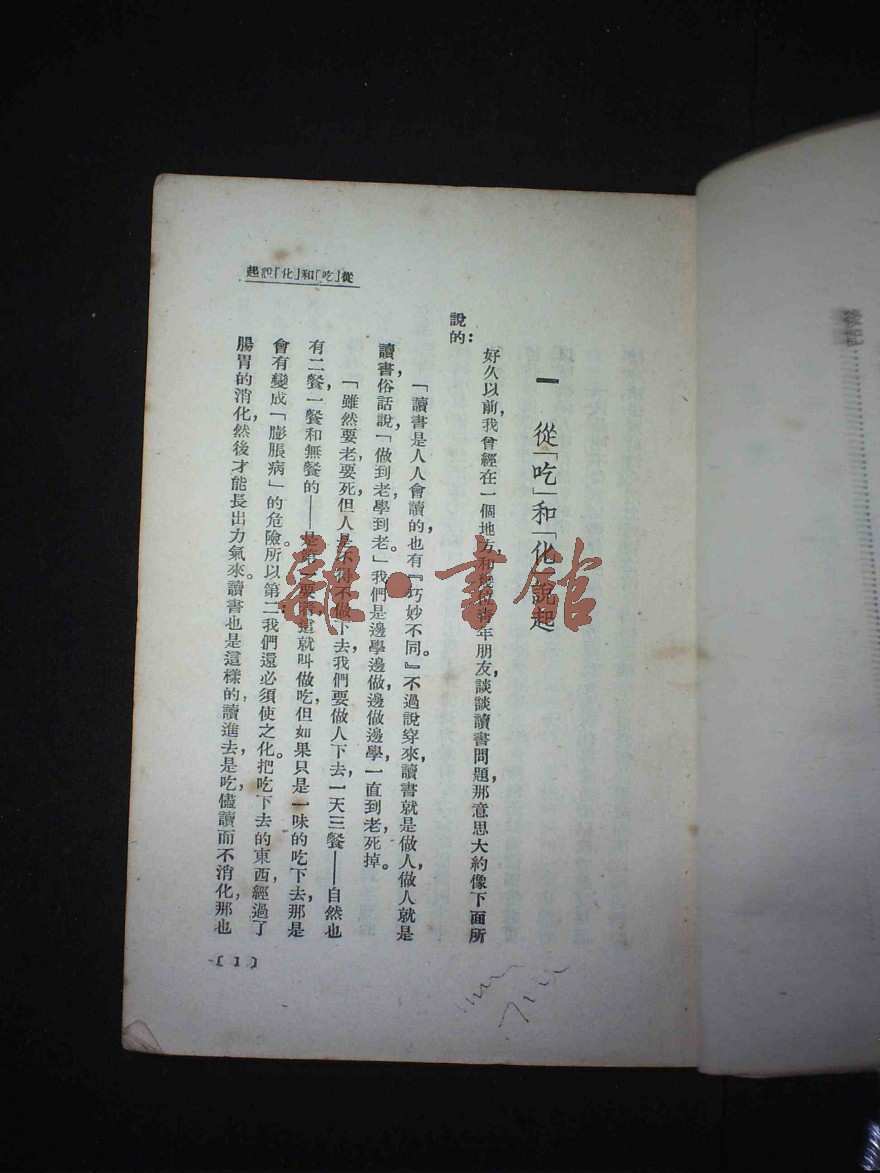 從「吃」和「化」說起
一 從「吃」和「化」說起
好久以前，我曾經在一個地方和幾位青年朋友談談讀書問題，那意思大約像下面所
說的：
「讀書是人人會讀的，也有『巧妙不同。』不過說穿來，讀書就是做人，做人就是
讀書，俗話說，「做到老，學到老。」我們是邊學邊做，邊做邊學，一直到老死掉。
「雖然要老，要死，但人是不得不做下去，我們要做人下去，一天三餐——自然也
有二餐，一餐和無餐的——是第一要著，這就叫做吃，但如果只是一味的吃下去，那是
會有變成「膨脹病」的危險；所以第二我們還必須使之化。把吃下去的東西，經過了
腸胃的消化，然後才能長出力氣來。讀書也是這樣的，讀進去，是吃，儘讀而不消化，那也
〔1〕
後記
雜·書館